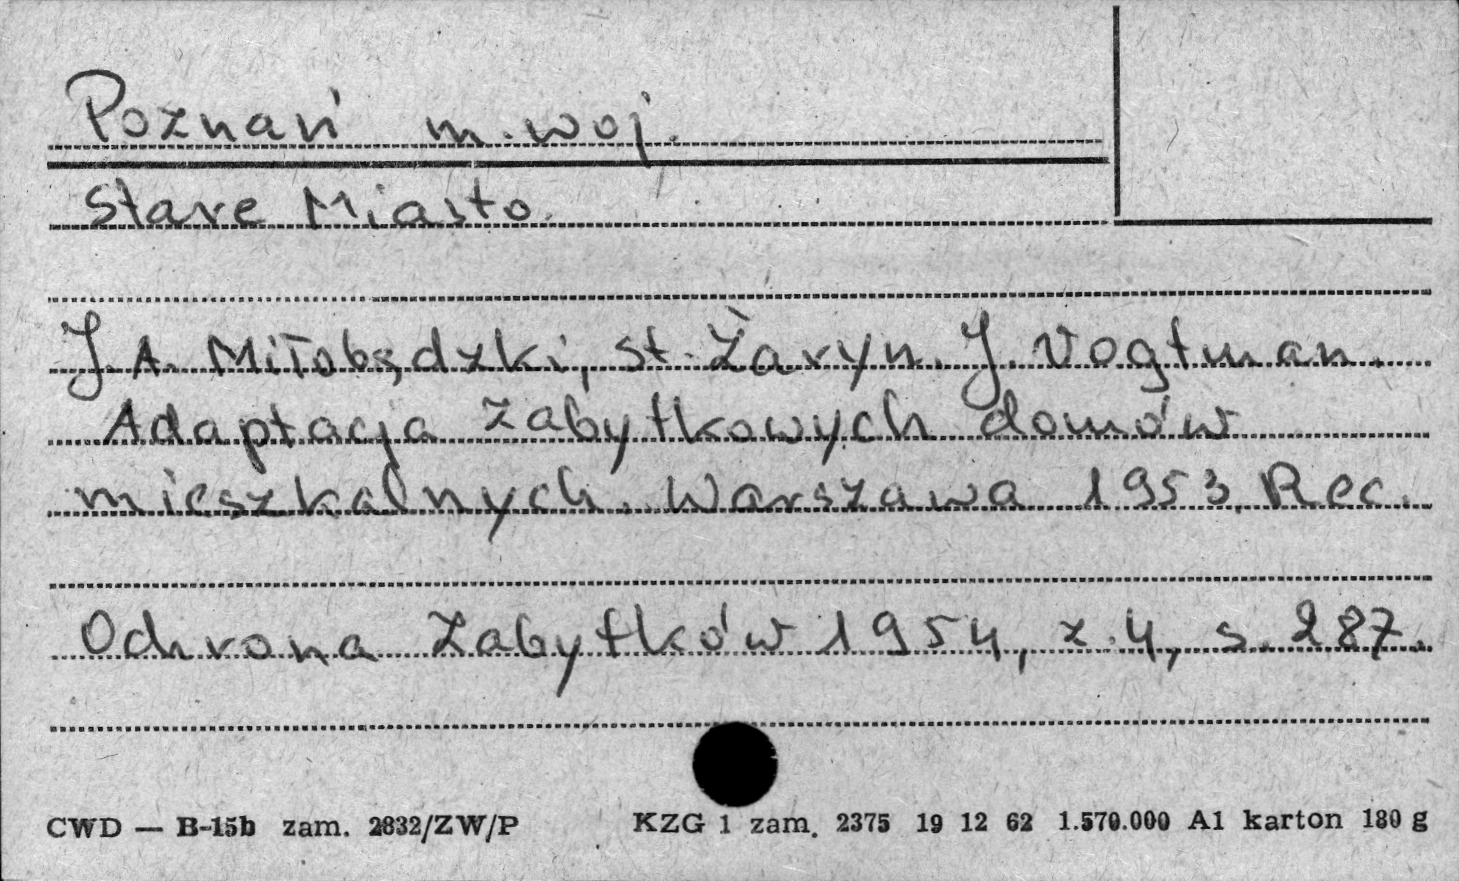 Poznań m. woj.
Stare Miasto.
J. A. Miłobędzki, St. Żaryn. J. Vogtman.
Adaptacja zabytkowych domów
mieszkalnych. Warszawa 1953. Rec.
Ochrona Zabytków 1954, z. 4, s. 287.
CWD — B-15b zam. 2832/ZW/P KZG 1 zam. 2375 19 12 62 1.570.000 A1 karton 180 g